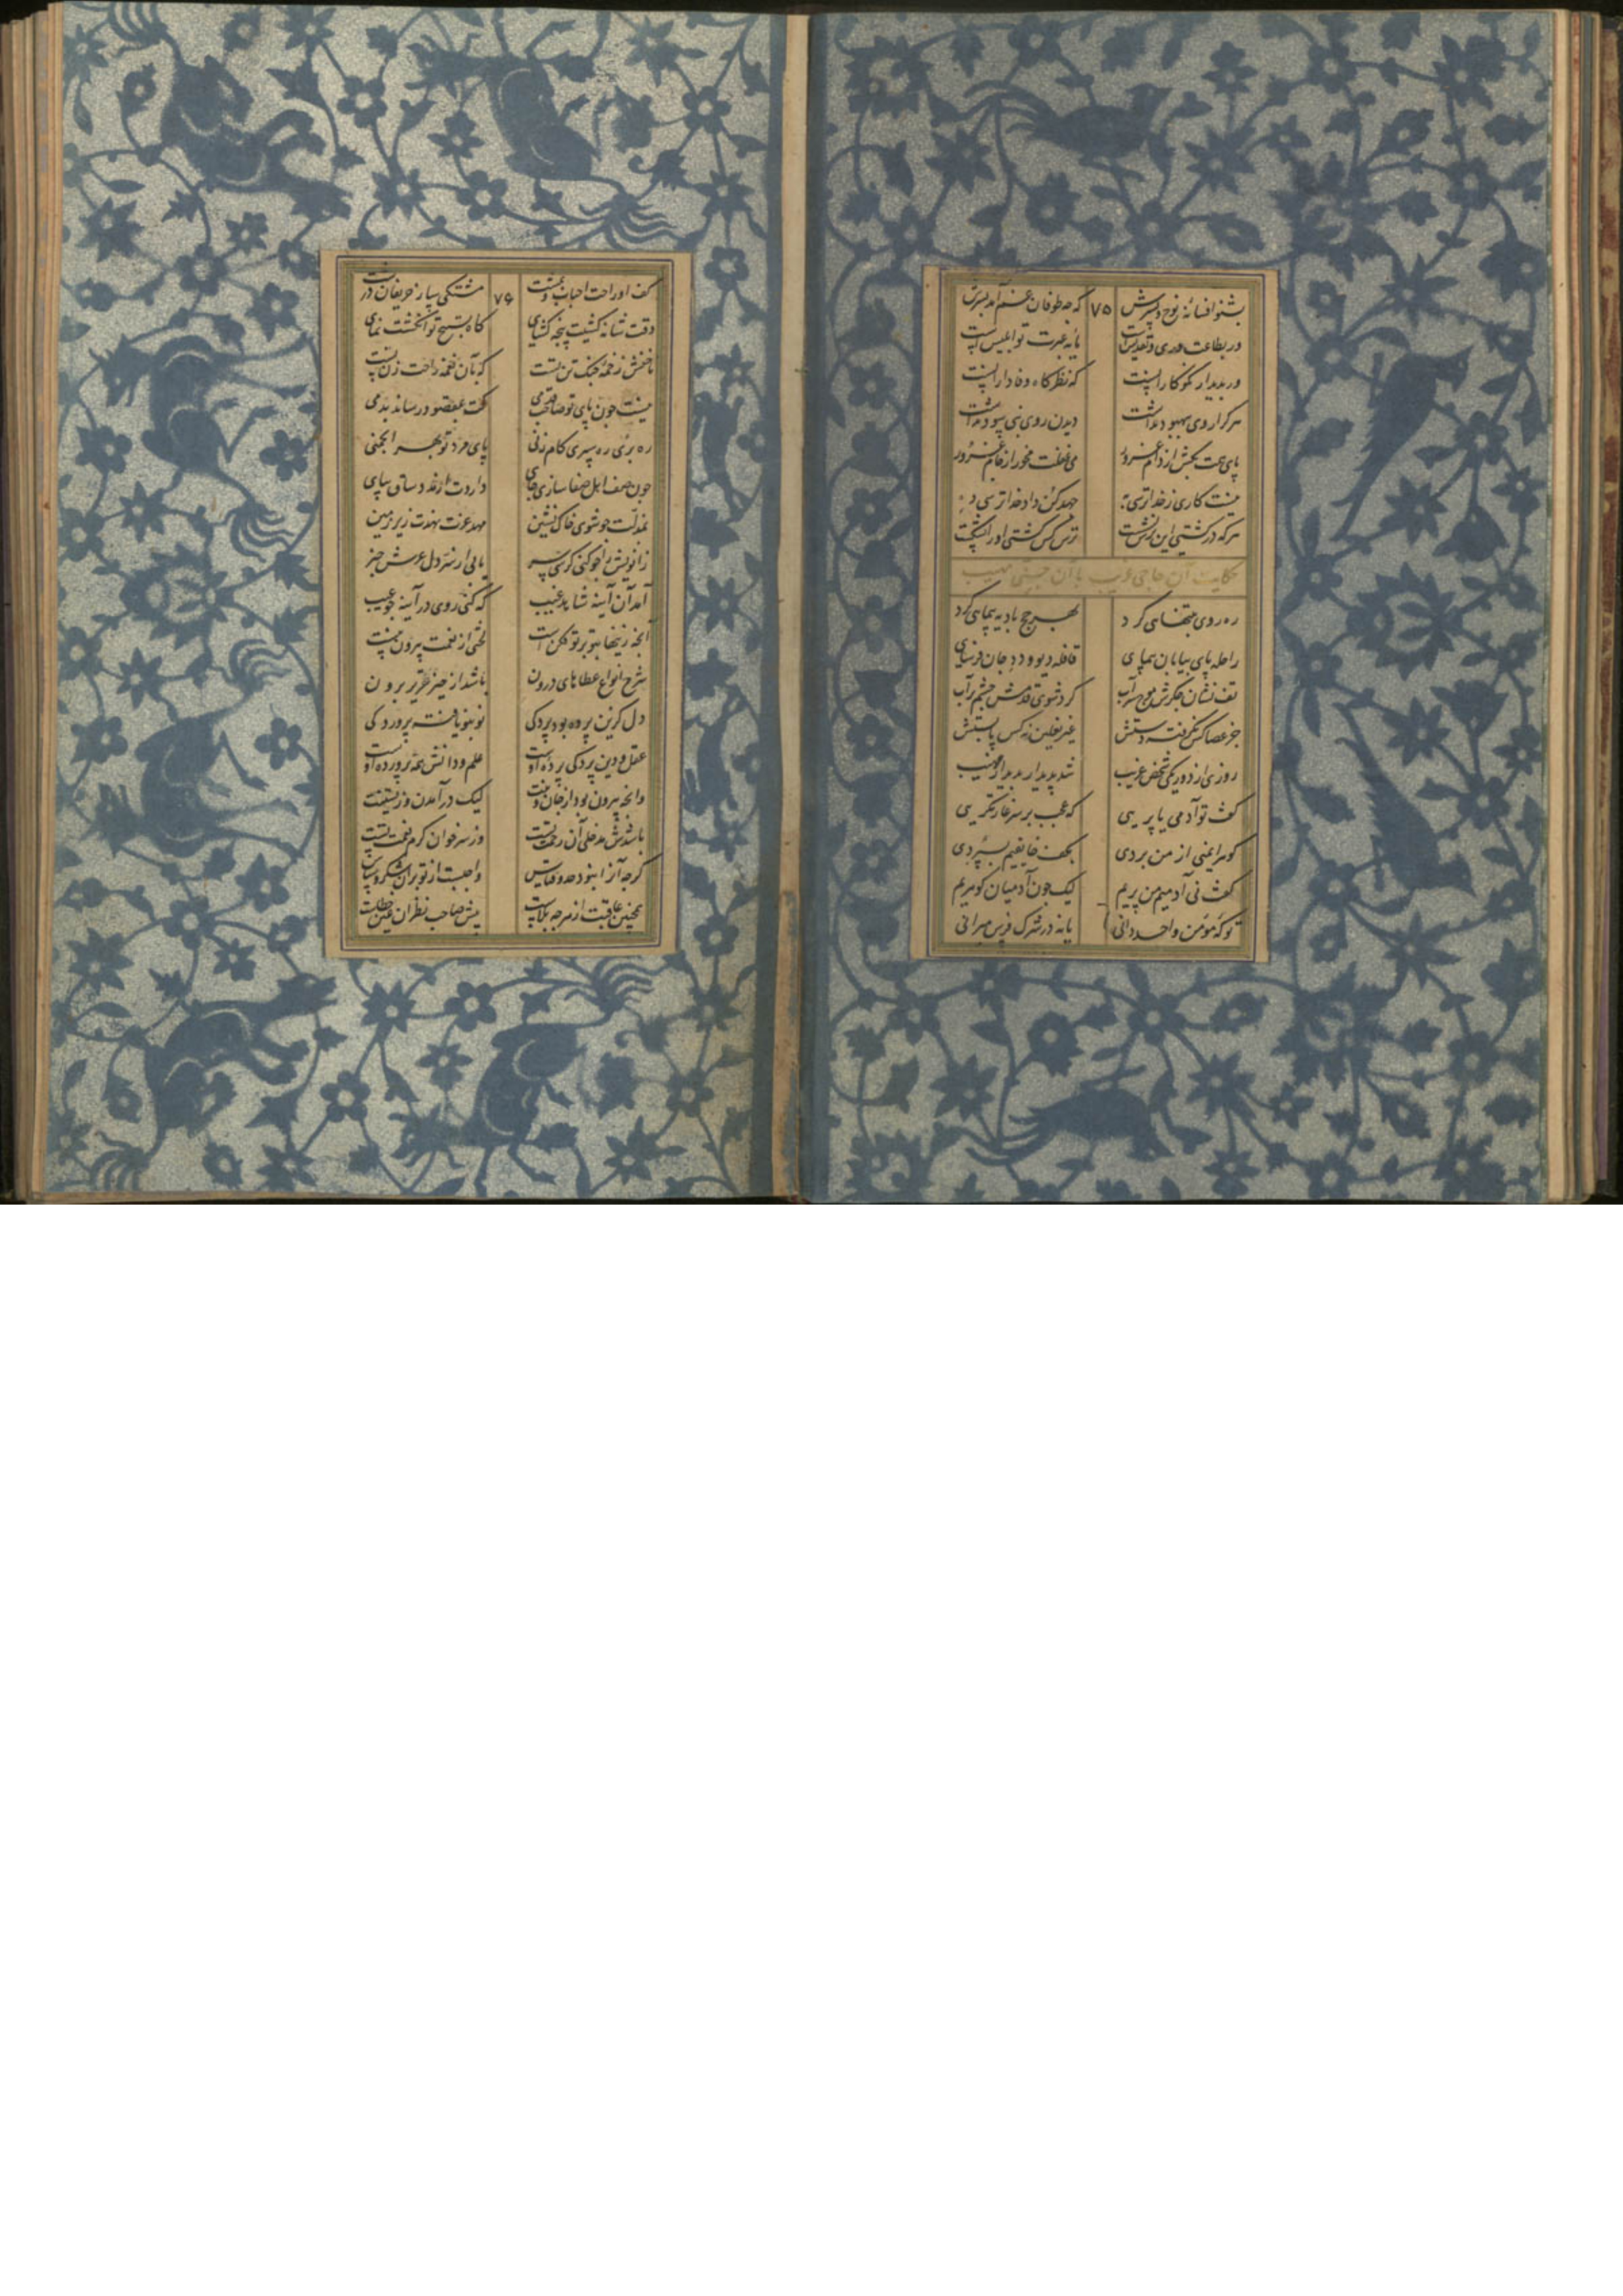 بشنو افسانهٔ نوح و پسرش ۷۵ که چه طوفان غم آمد بسرش
ور بطاعت وری و تقدیس است مایه عبرت تو ابلیس است
ور بدیدار نکوکارانست که نظرکاه وفادارانست
هر کرا روی ببهبود نداشت دیدن روی نبی سود نداشت
پای همت بکش از دام غرور می غفلت مخور از جام غرور
نیست کاری ز خدا ترسی به جهد کن داد خدا ترسی ده
هر که در کشتی این ترس نشست ترس کس کشتی او را نشکست
حکایت آن حاجی غریب با آن جنی مهیب
ره روی بتنهایی کرد بهر حج بادیه پیمایی کرد
راحله پای بیابان پیمای قافله دیو و دد جان فرسای
تف نشان جکرش موج سراب کرد شوی قدمش چشم پر آب
جز عصا کس نکرفته دستش غیر نعلین نه کس پابستش
روزی از دور یکی شخص غریب شد پدیدار بدیدار مهیب
کفت تو آدمی یا پریی که عجب بر سر غارتکریی
کوهر ایمنی از من بردی بکف خایفیم بسپردی
کفت نی آدمیم من پریم لیک چون آدمیان کوهریم
تو که مؤمن واحد دانی یا نه در شرک فرس میرانی
کف او راحت احباب و بمشت ۷۶ مشتکی بسیار حریفان درشت
وقت شانه کشیت پنجه کشای کاه تسبیح تو انکشت نمای
ناخنش زخمهٔ چنک تن تست که بآن نغمه راحت زن تست
نیست چون پای تو صاحب قدمی کت بمقصود رساند بدمی
ره بری ره سپری کام زنی پای مرد تو بهر انجمنی
چون صف اهل صفا سازی جای داردت از مدد ساق بپای
بمذلت چو شوی خاک نشین مهد عزت نهدت زیر زمین
زانویش را چو کنی کرسی سر یابی از سر دل عرش خبر
آمد آن آینه شاید غیب که کنی روی در آینه جیب
آنچه زینها بتو بر تو فکن است لختی از نعمت بیرون تنست
شرح انواع عطاهای درون باشد از حیز تقریر برون
دل کزین پرده بود پردکی نو بنو یافته پروردکی
عقل و دین پردکی پرده اوست علم و دانش همه پرورده اوست
وانچه بیرون بود از جان و تنت لیک در آمدن و زیستنت
باشدش مدخلی آن رحمت تست وز سر خوان کرم نعمت تست
کرچه آنرا نبود حد و قیاس واجبست از تو بر آن شکر و سپاس
همچنین عافیت از هر چه بلاست پیش صاحب نظران عین عطاست